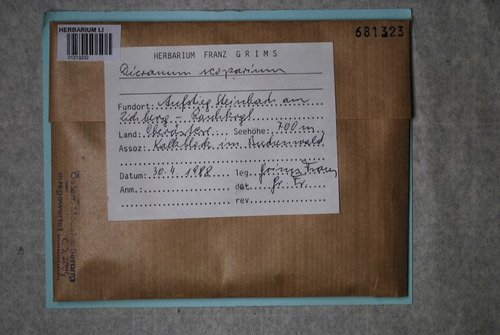 HERBARIUM LI
681323
HERBARIUM FRANZ GRIMS
Dicranum scoparium
Fundort: Aufstieg Steinbach am
Land: Oberösterr. Seehöhe: 700 m
Assoz: Kalkblock im Buchenwald
Datum: 30.4.1988 leg. Grims Franz
Anm.: det. Gr. Fr.
rev.